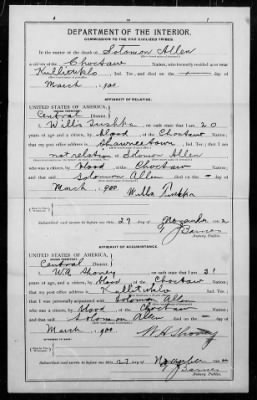 DEPARTMENT OF THE INTERIOR.
COMMISSION TO THE FIVE CIVILIZED TRIBES.
In the matter of the death of Solomon Allen
a citizen of the Choctaw Nation, who formerly resided at or near
Kullituklo, Ind. Ter., and died on the — day of
March, 1900.
AFFIDAVIT OF RELATIVE.
UNITED STATES OF AMERICA,
INDIAN TERRITORY,
Central District.
I, Willis, on oath state that I am 20
years of age and a citizen, by blood, of the Choctaw
Nation; that my post office address is Shawneetown, Ind. Ter.; that I am
not relation of Solomon Allen
who was a citizen, by blood, of the Choctaw
Nation, and that said Solomon Allen died on the — day of
March, 1900.
Subscribed and sworn to before me this 29 day of November, 1902
Notary Public.
AFFIDAVIT OF ACQUAINTANCE.
UNITED STATES OF AMERICA,
INDIAN TERRITORY,
Central District.
I, on oath state that I am 31
years of age, and a citizen by blood of the Choctaw
Nation; that my post office address is Kullituklo, Ind. Ter.;
that I was personally acquainted with Solomon Allen
who was a citizen, by blood, of the Choctaw
Nation; and that said Solomon Allen died on the — day of
March, 1900.
Subscribed and sworn to before me this day of November
Notary Public.